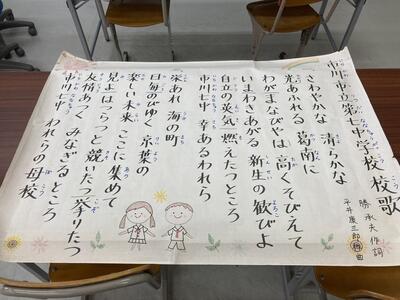 市川市立第七中学校 校歌
勝 承夫 作詞
平井康三郎 作曲
さわやかな 清らかな
光あふれる 葛南に
わがまなびやは 高くそびえて
いまわきあがる 新生の歓びよ
自立の英気 燃えたつところ
市川七中 幸あるわれら
栄あれ 海の町
日毎のびゆく 京葉の
楽しい未来 ここに集めて
見よはつらつと 競いたつ 挙りたつ
友情あつく みなぎるところ
市川七中 われらの母校